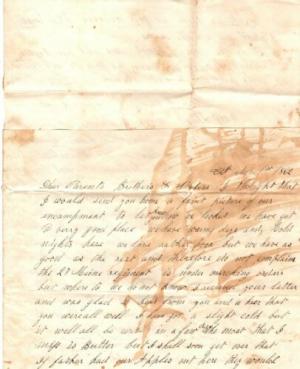 1862
Dear Parents Brothers & Sisters I thought that
I would send you home a faint picture of our
encampment to let you we looked we have got
a very good place we have warm days and Cold
nights here we fare rather poor but we have as
good as the rest and therefore do not complain
the 27 Maine regiment under marching orders
but where to we do not know I received your letter
and was glad to hear from you and to hear that
you were all well I have got a slight cold but
it will all be well in a few the most that I
miss is Butter but I shall soon get over that
If father had our Apples out here they would